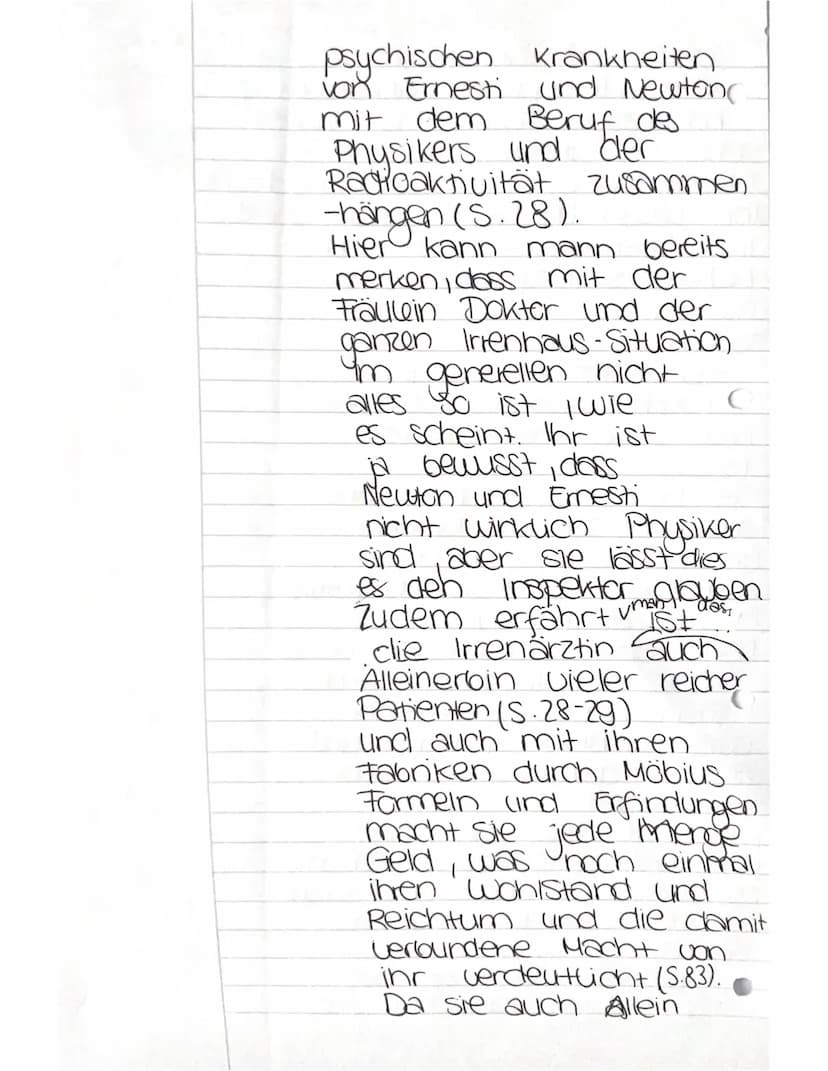 psychischen Krankheiten
von Ernesti und Newton
mit dem Beruf des
Physikers und der
Radioaktivität zusammen
-hängen (S. 28).
Hier kann mann bereits
merken, dass mit der
Fräulein Doktor und der
ganzen Irrenhaus-Situation
im generellen nicht
alles so ist, wie
es scheint. Ihr ist
ja bewusst, dass
Newton und Ernesti
nicht wirklich Physiker
sind, aber sie lässt dies
es den Inspektor glauben
Zudem erfährt man, das, ist
die Irrenärztin auch
Alleinerbin vieler reicher
Patienten (S. 28-29)
und auch mit ihren
Fabriken durch Möbius
Formeln und Erfindungen
macht sie jede Menge
Geld, was noch einmal
ihren Wohlstand und
Reichtum und die damit
verbundene Macht von
ihr verdeutlicht (S.83).
Da sie auch Allein